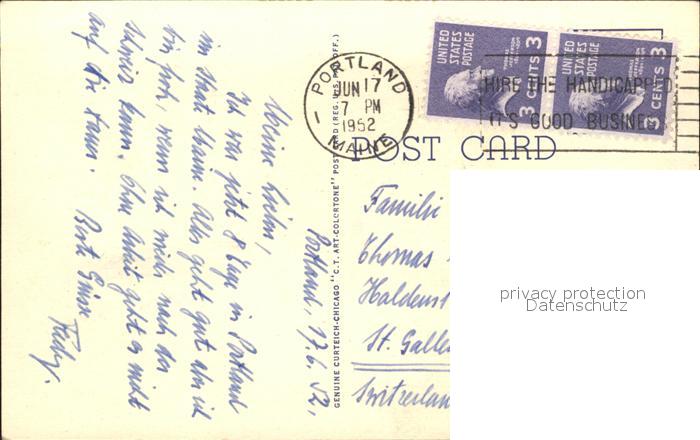 PORTLAND
JUN 17
7 PM
1952
MAINE
1
UNITED STATES POSTAGE
3 CENTS 3
UNITED STATES POSTAGE
3 CENTS 3
HIRE THE HANDICAPPED
IT'S GOOD BUSINESS
POST CARD
GENUINE CURTEICH-CHICAGO "C.T. ART-COLORTONE" POST CARD (REG. U.S. PAT. OFF.)
Portland, 17.6.52,
Meine Lieben,
Ich war jetzt 8 Tage in Portland
im Staat Maine. Alles geht gut aber ich
bin froh, wenn ich wieder nach der
Schweiz kann. Ohne Arbeit geht es nicht
auf die Dauer. Beste Grüsse
Familie
Thomas
Haldenst
St. Galle
Switzerlan
privacy protection
Datenschutz